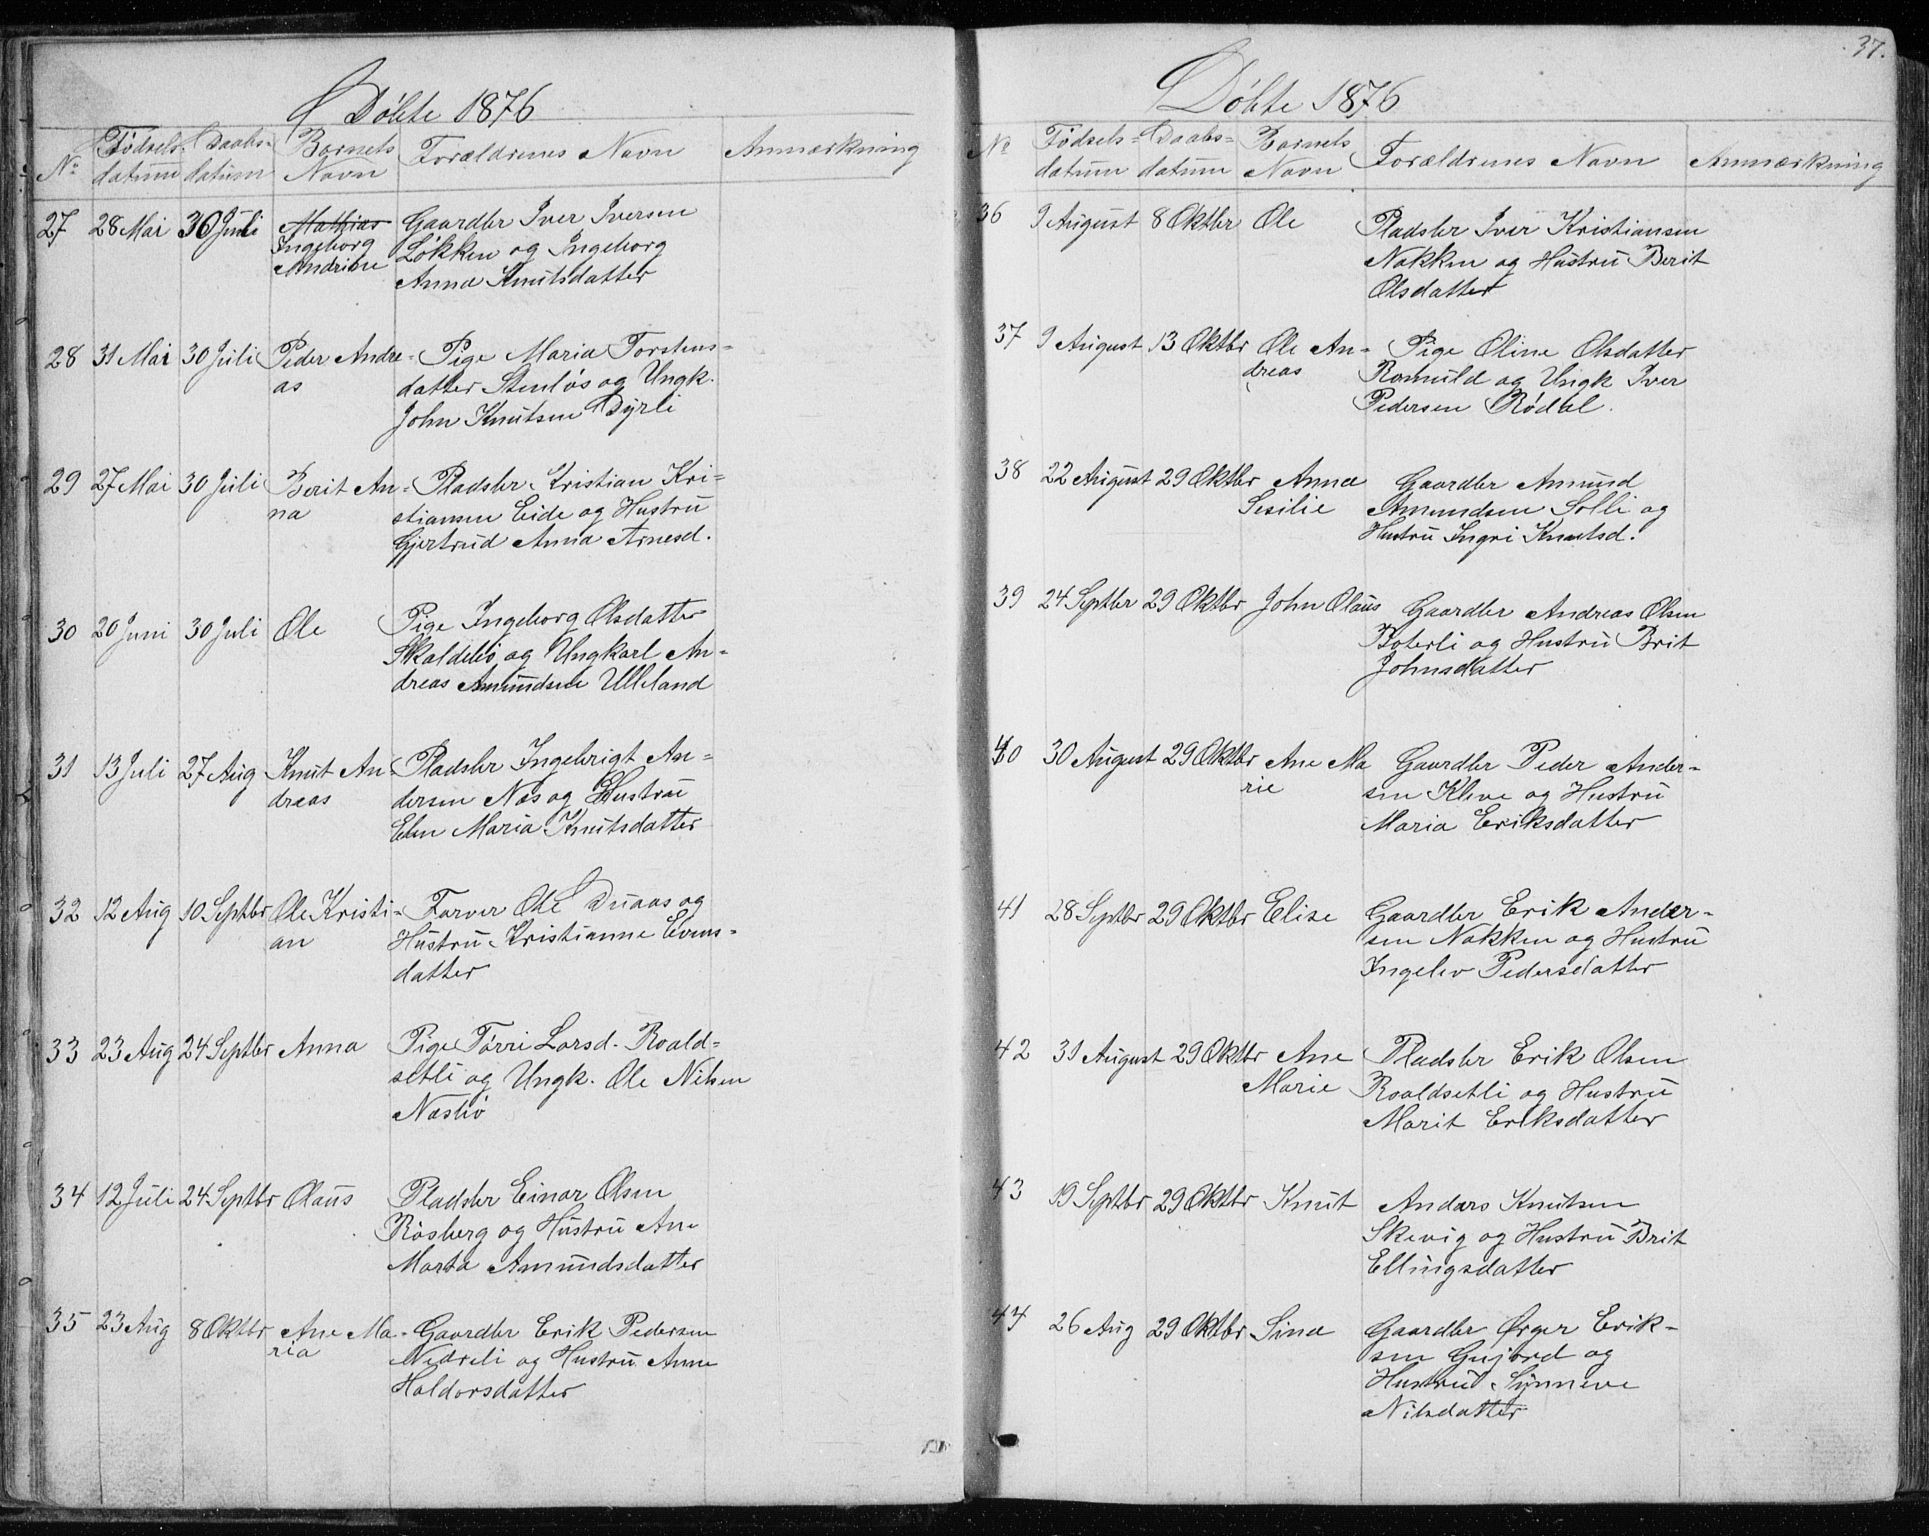 Døbte 1876
No Fødsels- Daabs- Barnets Forældrenes Navn Anmærkning
datum datum Navn
27 28 Mai 30 Juli Mathias Gaardbr Iver Iversen
Ingeborg Løkken og Ingeborg
Andrine Anna Knutsdatter
28 31 Mai 30 Juli Peder Andre- Pige Maria Torstens-
as datter Stenløs og Ungk.
John Knutsen Dyrli
29 27 Mai 30 Juli Berit An- Pladsbr. Kristian Kri-
na stiansen Eide og Hustru
Gjertrud Anna Arnesd.
30 20 Juni 30 Juli Ole Pige Ingeborg Olsdatter
Skaldebø og Ungkarl An-
dreas Amundsen Ulleland
31 13 Juli 27 Aug Knut An- Pladsbr Ingebrigt An-
dreas dersen Nas og Hustru
Elen Maria Knutsdatter
32 12 Aug 10 Septbr Ole Kristi- Farver Ole Duaas og
an Hustru Kristianne Evens-
datter
33 23 Aug 24 Septbr Anna Pige Tørri Larsd. Roald-
setli og Ungk. Ole Nilsen
Næsbø
34 12 Juli 24 Septbr Olaus Pladsbr Einar Olsen
Røsberg og Hustru Ane
Marta Amundsdatter
35 23 Aug 8 Oktbr Ane Ma- Gaardbr Erik Pedersen
ria Nedreli og Hustru Anne
Haldorsdatter
37.
Døbte 1876
No Fødsels- Daabs- Barnets Forældrenes Navn Anmærkning
datum datum Navn
36 9 August 8 Oktbr Ole Pladsbr Iver Kristiansen
Nakken og Hustru Berit
Olsdatter
37 9 August 13 Oktbr Ole An- Pige Oline Olsdatter
dreas Romuld og Ungk Iver
Pedersen Rødal.
38 22 August 29 Oktbr Anna Gaardbr Amund
Sesilie Amundsen Solli og
Hustru Ingri Knutsd.
39 24 Septbr 29 Oktbr John Olaus Gaardbr Andreas Olsen
Boterli og Hustru Brit
Johnsdatter
40 30 August 29 Oktbr Ane Ma Gaardbr Peder Ander-
rie sen Kleve og Hustru
Maria Eriksdatter
41 28 Septbr 29 Oktbr Elise Gaardbr Erik Ander-
sen Nakken og Hustru
Ingelev Pedersdatter
42 31 August 29 Oktbr Ane Pladsbr Erik Olsen
Marie Roaldsetli og Hustru
Marit Eriksdatter
43 19 Septbr 29 Oktbr Knut Andars Knutsen
Skevig og Hustru Brit
Ellingsdatter
44 26 Aug 29 Oktbr Sina Gaardbr Ørger Erik-
sen Gujord og
Hustru Synneve
Nilsdatter